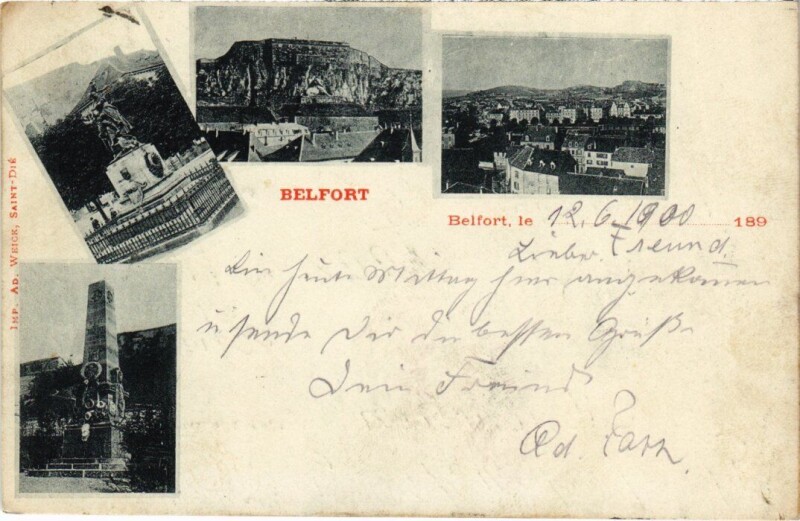 BELFORT
Belfort, le 12.6.1900 189
Lieber Freund.
Bin heute Mittag hier angekommen
u sende Dir die besten Grüße
Dein Freund
Ad.
IMP. AD. WEICK, SAINT-DIÉ